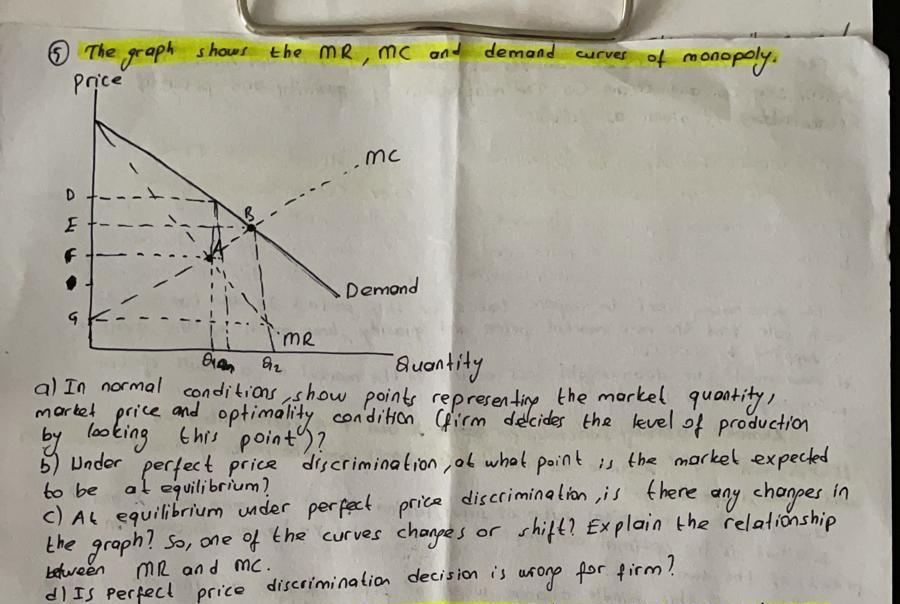 ⑤ The graph shows the MR, MC and demand curves of monopoly.
Price
MC
D
B
E
A
F
Demand
G
MR
Q1
Q2
Quantity
a) In normal conditions, show points representing the market quantity,
market price and optimality condition (firm decides the level of production
by looking this point)?
b) Under perfect price discrimination, at what point is the market expected
to be at equilibrium?
c) At equilibrium under perfect price discrimination, is there any changes in
the graph? So, one of the curves changes or shift? Explain the relationship
between MR and MC.
d) Is perfect price discrimination decision is wrong for firm?